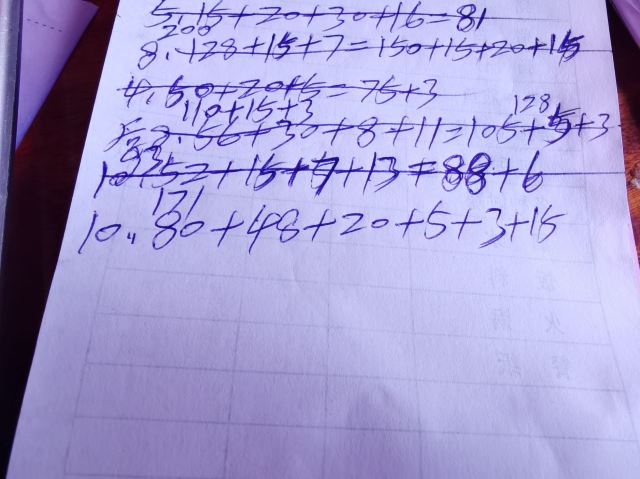 5.15+20+30+16=81
200
8.128+15+7=150+15+20+15
4.50+20+5=75+3
110+15+3 128
2.56+30+8+11=105+5+3
93
10.52+15+7+13=88+6
171
10.80+48+20+5+3+15